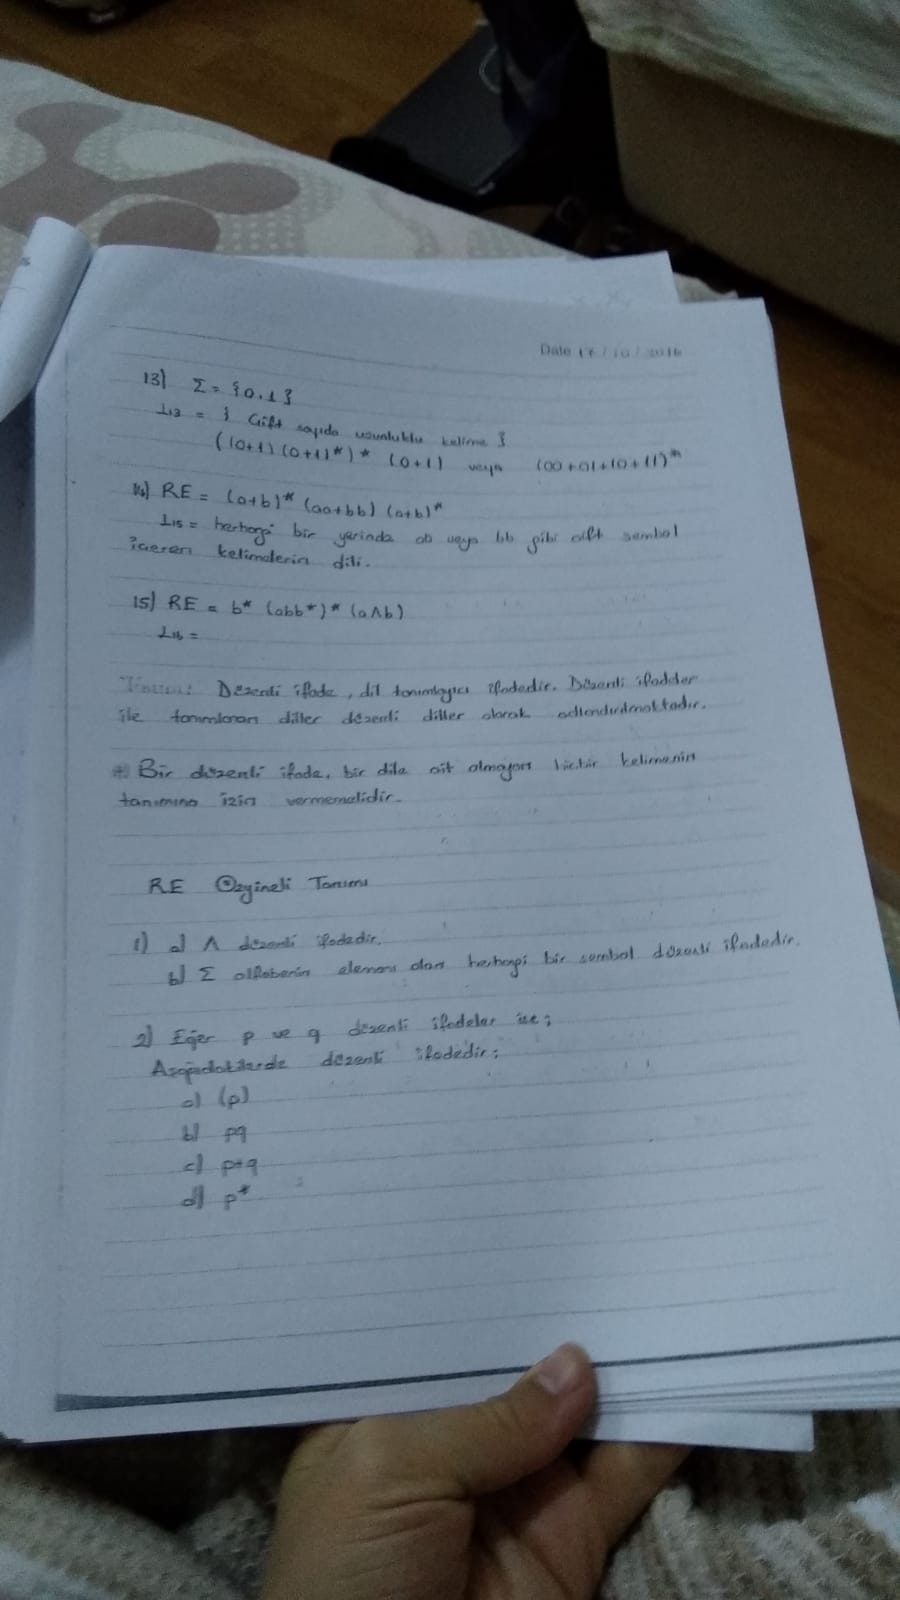 Date 17/10/2016
13) Σ = {0,1}
L13 = { Çift sayıda uzunluklu kelime }
((0+1)(0+1)*)* (0+1) veya (00+01+10+11)*
14) RE = (a+b)* (aa+bb) (a+b)*
L15 = herhangi bir yerinde aa veya bb gibi çift sembol
içeren kelimelerin dili.
15) RE = b* (abb*)* (a Λ b)
L16 =
Tanım: Düzenli ifade, dil tanımlayıcı ifadedir. Düzenli ifadeler
ile tanımlanan diller düzenli diller olarak adlandırılmaktadır.
* Bir düzenli ifade, bir dile ait olmayan hiçbir kelimenin
tanımına izin vermemelidir.
RE Özyineli Tanımı
1) a) Λ düzenli ifadedir.
b) Σ alfabenin elemanı olan herhangi bir sembol düzenli ifadedir.
2) Eğer p ve q düzenli ifadeler ise;
Aşağıdakilerde düzenli ifadedir;
a) (p)
b) pq
c) p+q
d) p*